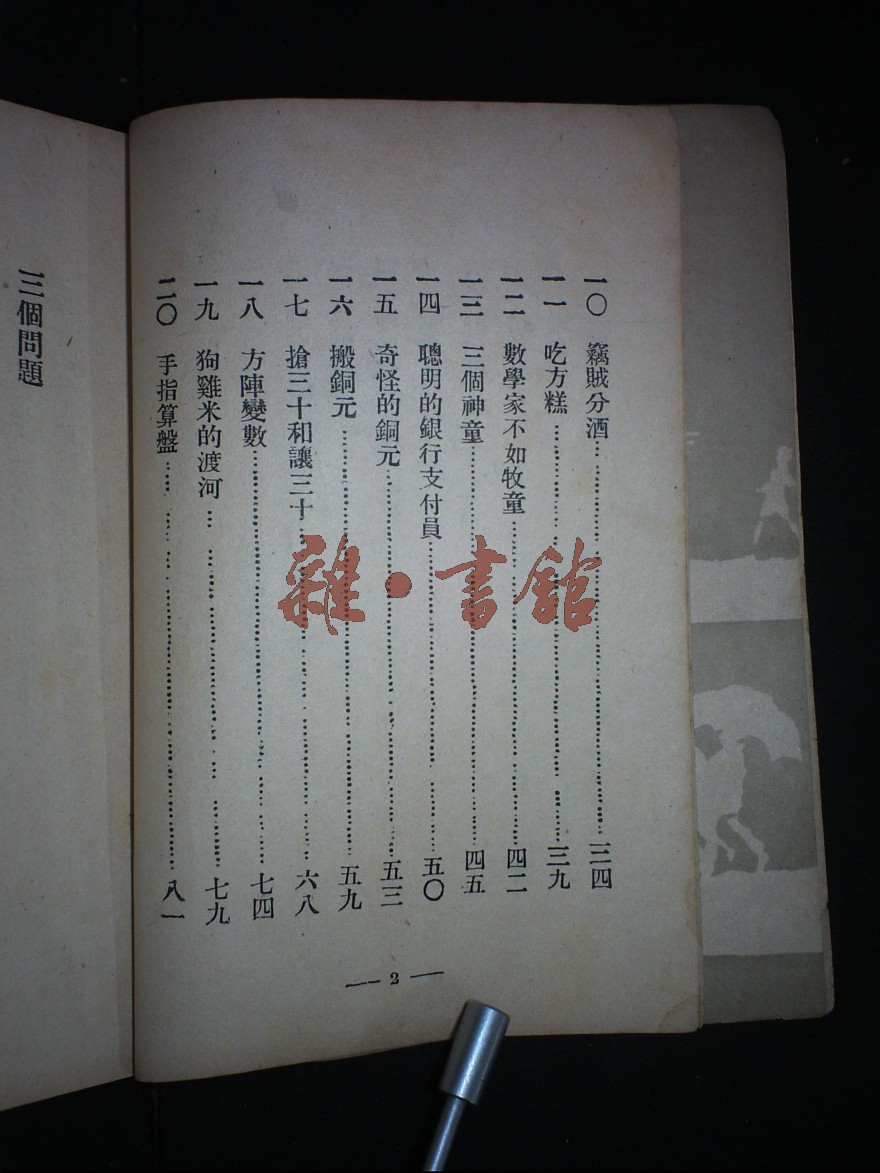 一〇 竊賊分酒……三四
一一 吃方糕……三九
一二 數學家不如牧童……四二
一三 三個神童……四五
一四 聰明的銀行支付員……五〇
一五 奇怪的銅元……五三
一六 搬銅元……五九
一七 搶三十和讓三十……六八
一八 方陣變數……七四
一九 狗雞米的渡河……七九
二〇 手指算盤……八一
— 2 —
三個問題
雜·書館